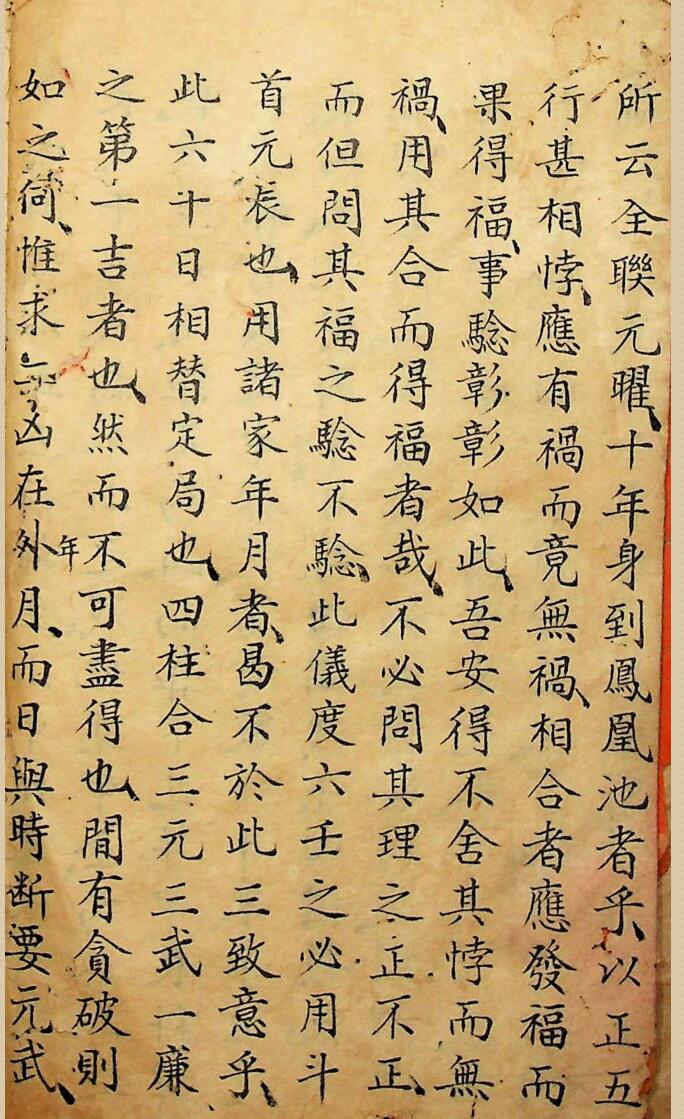 所云全聯元曜、十年身到鳳凰池者乎、以正五
行甚相悖、應有禍而竟無禍、相合者應發福而
果得福、事騐彰彰如此、吾安得不舍其悖而無
禍、用其合而得福者哉、不必問其理之正不正、
而但問其福之騐不騐、此儀度六壬之必用斗
首元辰也、用諸家年月者、曷不於此三致意乎、
此六十日相替定局也、四柱合三元三武一廉
之第一吉者也、然而不可盡得也、間有貪破則
如之何、惟求凶在外年月、而日與時断要元武、